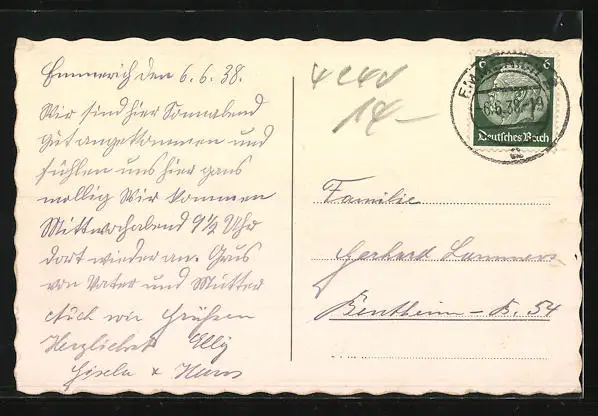 Emmerich den 6.6.38.
Wir sind hier Sonnabend
gut angekommen und
fühlen uns hier ganz
mollig Wir kommen
Mittwochabend 9½ Uhr
dort wieder an. Grus
von Vater und Mutter
Auch wir Grüssen
Herzlichst Elly
Gisela + Hans
14-
6 6
EMMERICH
6.6.38.-19
Deutsches Reich
Familie
Gerhard Lammers
Bentheim - B. 54